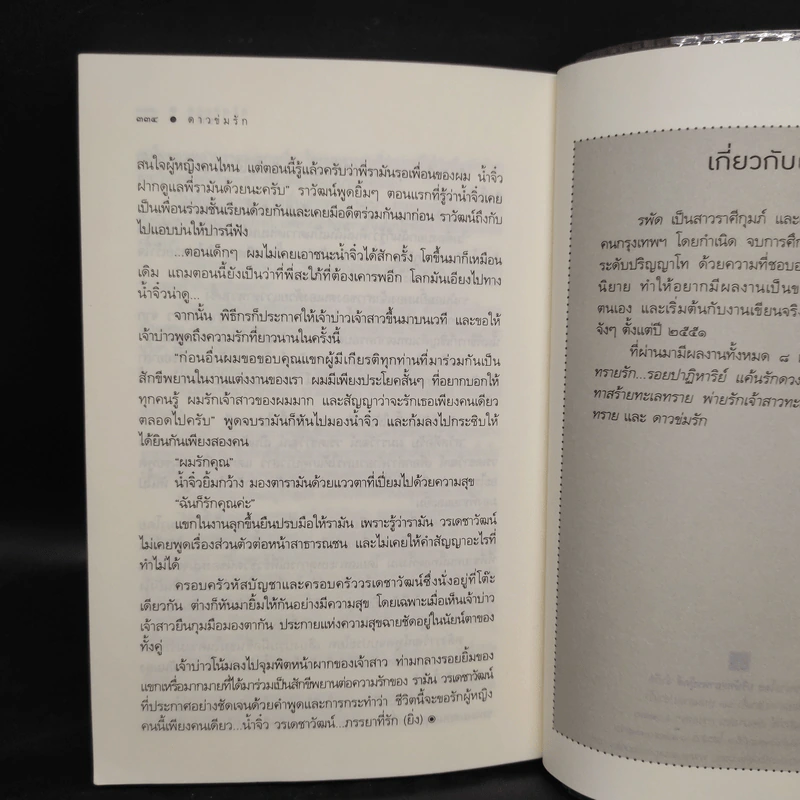 ๓๓๔ ● ดาวข่มรัก
สนใจผู้หญิงคนไหน แต่ตอนนี้รู้แล้วครับว่าพี่รามันรอเพื่อนของผม น้ำจิ๋ว
ฝากดูแลพี่รามันด้วยนะครับ” ราวัฒน์พูดยิ้มๆ ตอนแรกที่รู้ว่าน้ำจิ๋วเคย
เป็นเพื่อนร่วมชั้นเรียนด้วยกันและเคยมีอดีตร่วมกันมาก่อน ราวัฒน์ถึงกับ
ไปแอบบ่นให้ปารณีฟัง
...ตอนเด็กๆ ผมไม่เคยเอาชนะน้ำจิ๋วได้สักครั้ง โตขึ้นมาก็เหมือน
เดิม แถมตอนนี้ยังเป็นว่าที่พี่สะใภ้ที่ต้องเคารพอีก โลกมันเอียงไปทาง
น้ำจิ๋วน่าดู...
จากนั้น พิธีกรก็ประกาศให้เจ้าบ่าวเจ้าสาวขึ้นมาบนเวที และขอให้
เจ้าบ่าวพูดถึงความรักที่ยาวนานในครั้งนี้
“ก่อนอื่นผมขอขอบคุณแขกผู้มีเกียรติทุกท่านที่มาร่วมกันเป็น
สักขีพยานในงานแต่งงานของเรา ผมมีเพียงประโยคสั้นๆ ที่อยากบอกให้
ทุกคนรู้ ผมรักเจ้าสาวของผมมาก และสัญญาว่าจะรักเธอเพียงคนเดียว
ตลอดไปครับ” พูดจบรามันก็หันไปมองน้ำจิ๋ว และก้มลงไปกระซิบให้
ได้ยินกันเพียงสองคน
“ผมรักคุณ”
น้ำจิ๋วยิ้มกว้าง มองตารามันด้วยแววตาที่เปี่ยมไปด้วยความสุข
“ฉันก็รักคุณค่ะ”
แขกในงานลุกขึ้นยืนปรบมือให้รามัน เพราะรู้ว่ารามัน วรเดชาวัฒน์
ไม่เคยพูดเรื่องส่วนตัวต่อหน้าสาธารณชน และไม่เคยให้คำสัญญาอะไรที่
ทำไม่ได้
ครอบครัวหัสบัญชาและครอบครัววรเดชาวัฒน์ซึ่งนั่งอยู่ที่โต๊ะ
เดียวกัน ต่างก็หันมายิ้มให้กันอย่างมีความสุข โดยเฉพาะเมื่อเห็นเจ้าบ่าว
เจ้าสาวยืนกุมมือมองตากัน ประกายแห่งความสุขฉายชัดอยู่ในนัยน์ตาของ
ทั้งคู่
เจ้าบ่าวโน้มลงไปจุมพิตหน้าผากของเจ้าสาว ท่ามกลางรอยยิ้มของ
แขกเหรื่อมากมายที่ได้มาร่วมเป็นสักขีพยานต่อความรักของ รามัน วรเดชาวัฒน์
ที่ประกาศอย่างชัดเจนด้วยคำพูดและการกระทำว่า ชีวิตนี้จะขอรักผู้หญิง
คนนี้เพียงคนเดียว...น้ำจิ๋ว วรเดชาวัฒน์...ภรรยาที่รัก (ยิ่ง) ◉
เกี่ยวกับ
รพัด เป็นสาวราศีกุมภ์ และ
คนกรุงเทพฯ โดยกำเนิด จบการศึ
ระดับปริญญาโท ด้วยความที่ชอบอ
นิยาย ทำให้อยากมีผลงานเป็นข
ตนเอง และเริ่มต้นกับงานเขียนจริง
จังๆ ตั้งแต่ปี ๒๕๕๑
ที่ผ่านมามีผลงานทั้งหมด ๘ เ
ทรายรัก...รอยปาฏิหาริย์ แค้นรักดวง
ทาสร้ายทะเลทราย พ่ายรักเจ้าสาวทะ
ทราย และ ดาวข่มรัก